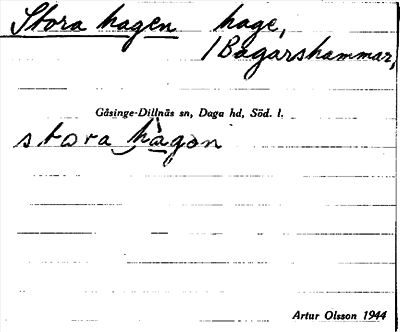 Stora hagen hage,
/Bagarshammar,
Gåsinge-Dillnäs sn, Daga hd, Söd. l.
stora hàgon
Artur Olsson 1944